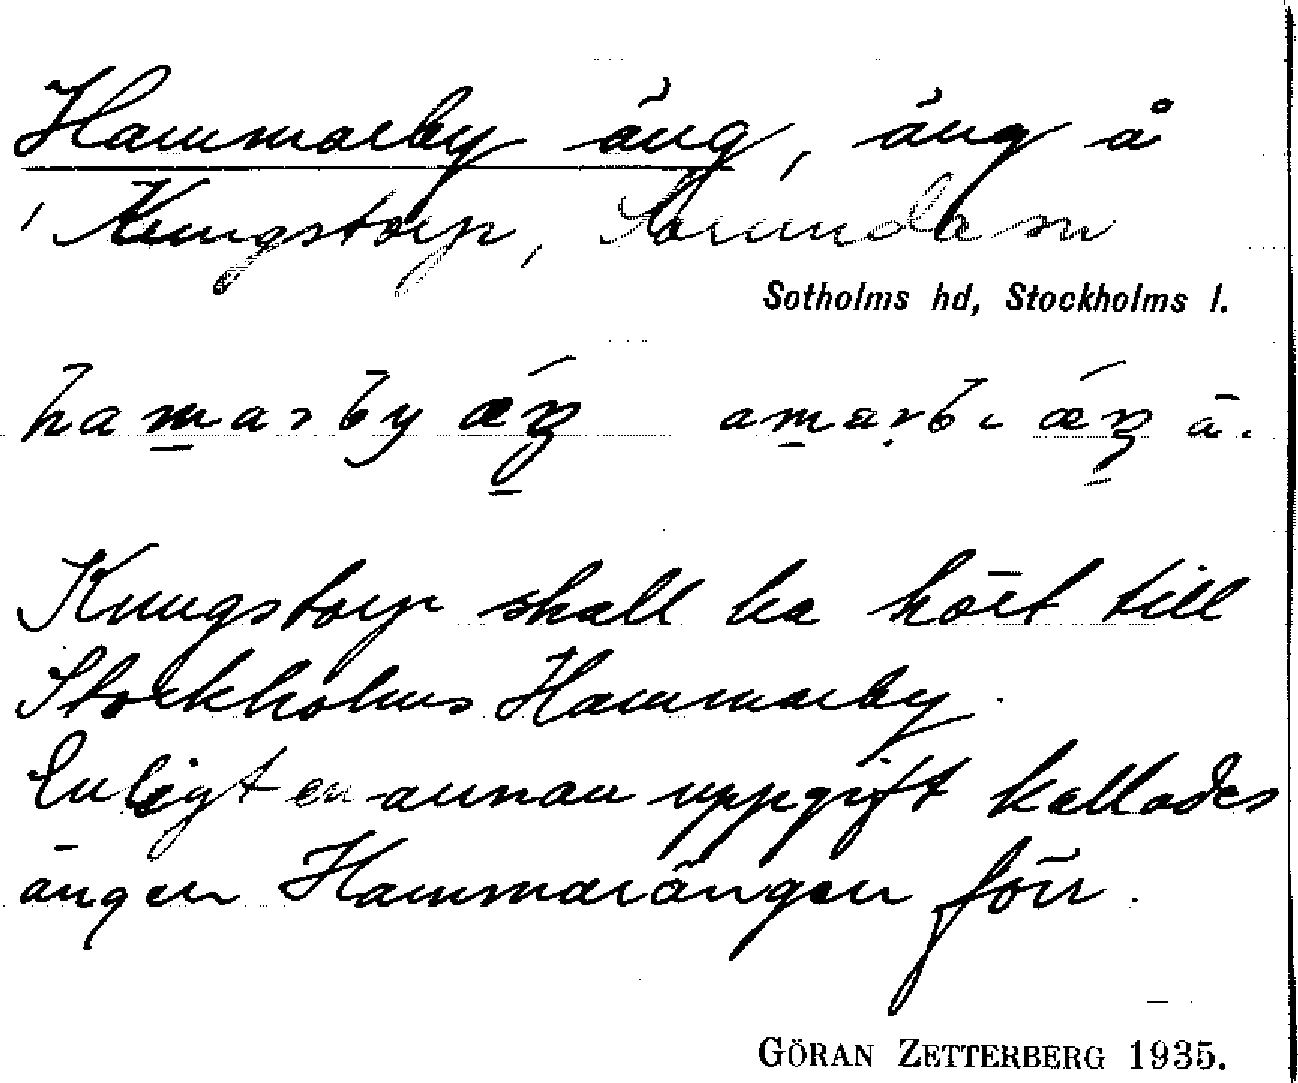 Hammarby äng, äng å
Kungstorp, Sorunda sn
Sotholms hd, Stockholms l.
hamarby æŋ amarbi æŋ ä.
Kungstorp skall ha hört till
Stockholms Hammarby.
Enligt en annan uppgift kallades
ängen Hammarängen förr.
GÖRAN ZETTERBERG 1935.